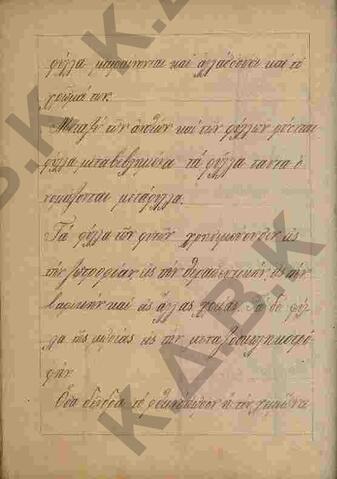 φύλλα μαραίνονται καὶ ἀλλάσσουσι καὶ τὸ
χρῶμά των.
Μεταξὺ τῶν ἀνθῶν καὶ τῶν φύλλων φύονται
φύλλα μεταβεβλημένα τὰ φύλλα ταῦτα ὀ
νομάζονται μετάφυλλα.
Τὰ φύλλα τῶν φυτῶν χρησιμεύουσιν εἰς
τὴν ζωοτροφίαν εἰς τὴν θεραπευτικήν, εἰς τὴν
βαφικὴν καὶ εἰς ἄλλας χρείας. Τὰ δὲ φύλ
λα τῆς μωρέας εἰς τὴν μεταξοσκωληκοτρο
φήν.
δένδρα τὸ φθινόπωρον ἢ τὸν χειμῶνα
Κ.Δ.Β.Κ.